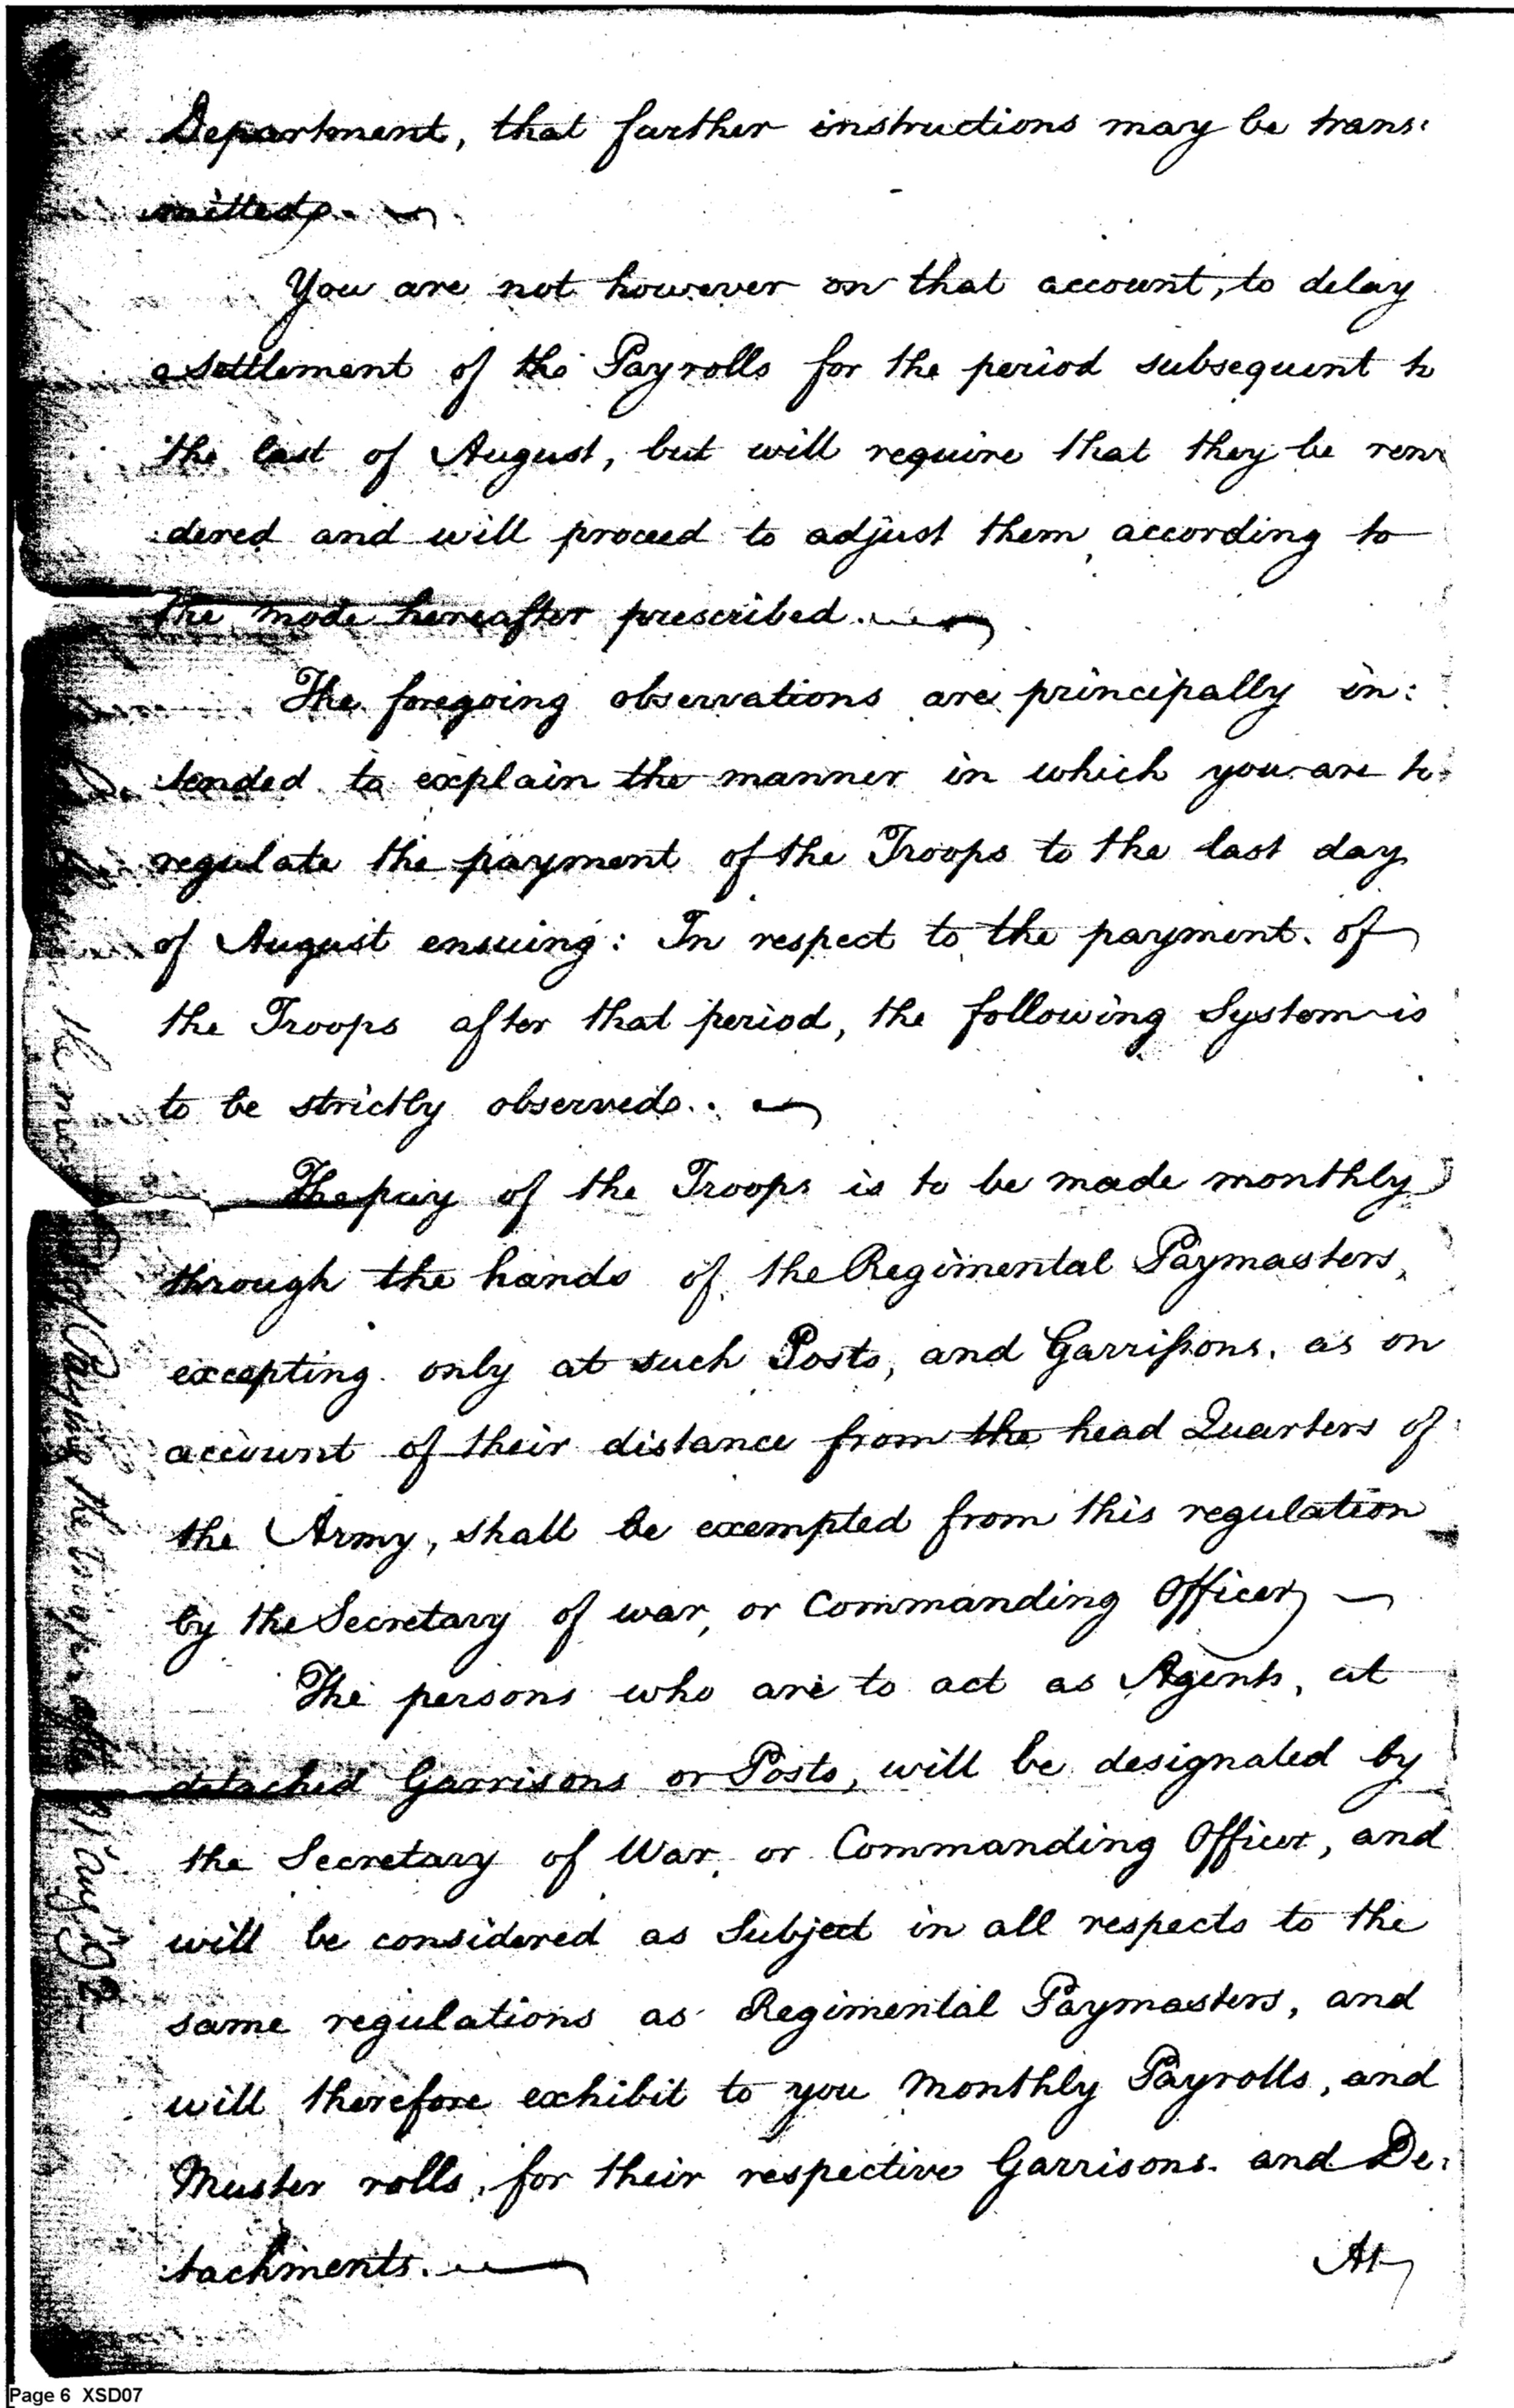 Department, that further instructions may be trans:
mitted.
You are not however on that account, to delay
a settlement of the Payrolls for the period subsequent to
the last of August, but will require that they be ren
:dered and will proceed to adjust them according to
the mode hereafter prescribed.
The foregoing observations are principally in:
tended to explain the manner in which you are to
regulate the payment of the Troops to the last day
of August ensuing: In respect to the payment of
the Troops after that period, the following System is
to be strictly observed.
The pay of the Troops is to be made monthly
through the hands of the Regimental Paymasters,
excepting only at such Posts, and Garrisons, as on
account of their distance from the head Quarters of
the Army, shall be exempted from this regulation
by the Secretary of war, or Commanding Officer
The persons who are to act as Agents, at
detached Garrisons or Posts, will be designated by
the Secretary of War, or Commanding Officer, and
will be considered as Subject in all respects to the
same regulations as Regimental Paymasters, and
will therefore exhibit to you Monthly Payrolls, and
Muster rolls, for their respective Garrisons and De:
:tachments.
At
of Paying the troops after 31 Aug 1792
Page 6 XSD07